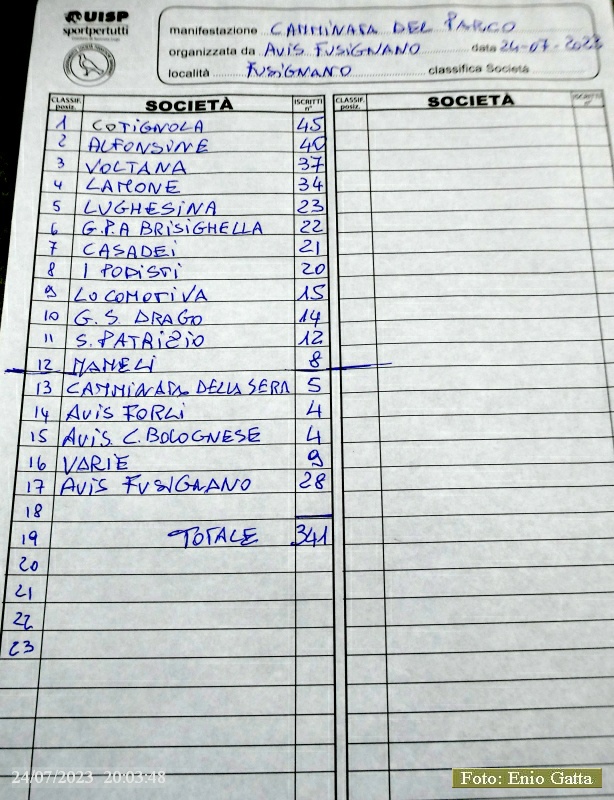 UISP
sportpertutti
manifestazione CAMMINATA DEL PARCO
organizzata da AVIS FUSIGNANO data 24-07-2023
località FUSIGNANO classifica Società
CLASSIF. posiz. SOCIETÀ ISCRITTI n° CLASSIF. posiz. SOCIETÀ ISCRITTI n°
1 COTIGNOLA 45
2 ALFONSINE 40
3 VOLTANA 37
4 LAMONE 34
5 LUGHESINA 23
6 G.P.A BRISIGHELLA 22
7 CASADEI 21
8 I PODISTI 20
9 LOCOMOTIVA 15
10 G. S. DRAGO 14
11 S. PATRIZIO 12
12 MAMELI 8
13 CAMMINATA DELLA SERA 5
14 AVIS FORLI 4
15 AVIS C. BOLOGNESE 4
16 VARIE 9
17 AVIS FUSIGNANO 28
18
19 TOTALE 341
20
21
22
23
24/07/2023 20:03:48
Foto: Enio Gatta